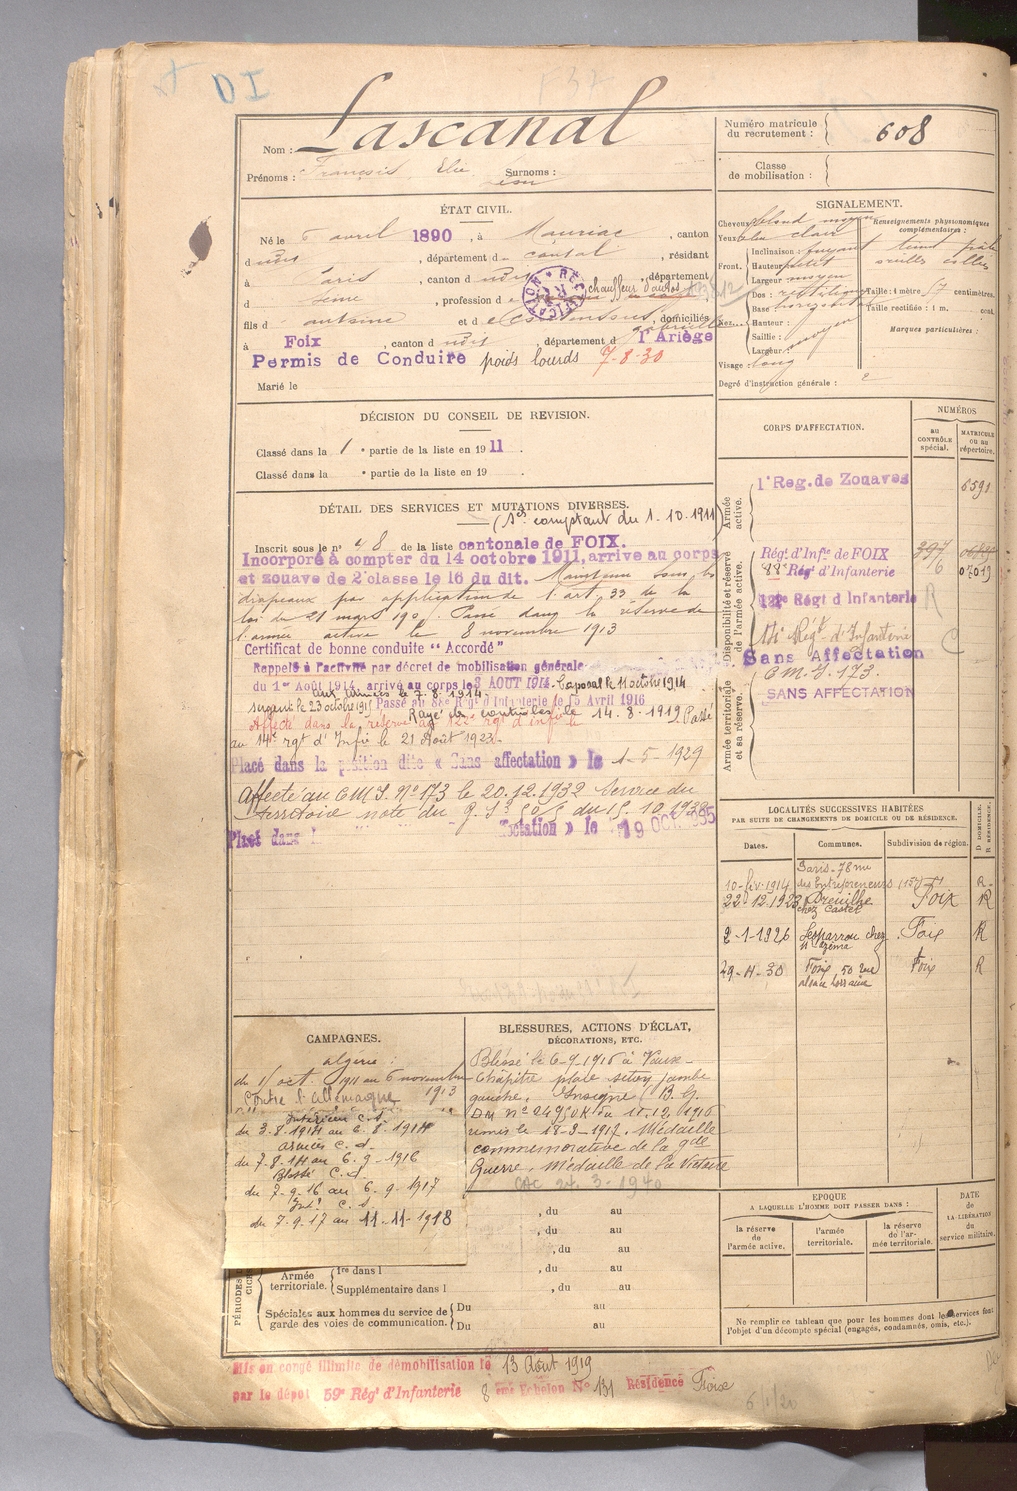 DI
F37
Nom : Lascanal
Prénoms : François Elie Surnoms :
Numéro matricule du recrutement : 608
Classe de mobilisation :
ÉTAT CIVIL.
Né le 6 avril 1890, à Mauriac, canton
dudit, département du cantal, résidant
à Paris, canton dudit, département
d Seine, profession de chauffeur d'autos
RECTIFICATION
fils d antoine et d, domiciliés
à Foix, canton dudit, département d l'Ariège
Permis de Conduire poids lourds 7-8-30
Marié le
SIGNALEMENT.
Cheveux blond moyen
Yeux bleu clair
Front. Inclinaison : fuyant
Hauteur petit
Largeur moyen
Nez. Dos : rectiligne
Base horizontal
Hauteur :
Saillie : moyen
Largeur :
Visage : long
Renseignements physionomiques complémentaires :
teint pâle
oreilles collées
Taille : 1 mètre 57 centimètres.
Taille rectifiée : 1 m. cent.
Marques particulières :
Degré d'instruction générale : 2
DÉCISION DU CONSEIL DE REVISION.
Classé dans la 1e partie de la liste en 1911.
Classé dans la e partie de la liste en 19
DÉTAIL DES SERVICES ET MUTATIONS DIVERSES.
(Ses comptant du 1.10.1911
Inscrit sous le n° 48 de la liste cantonale de FOIX.
Incorporé à compter du 14 octobre 1911, arrive au corps
et zouave de 2e classe le 16 du dit. Maintenu sous les
drapeaux par application de l'art. 33 de la
loi du 21 mars 190. Passé dans la réserve de
l'armée active le 8 novembre 1913
Certificat de bonne conduite "Accordé"
Rappelé à l'activité par décret de mobilisation générale
du 1er Août 1914, arrivé au corps le 3 AOUT 1914. Caporal le 11 octobre 1914
aux armées le 7.8.1914.
sergent le 23 octobre 1915 Passé au 88e Régt d'Infanterie le 15 Avril 1916
Rayé des contrôles le 14.8.1919 Passé
Affecté dans la réserve au 122e rgt d'infie
au 14e rgt d'Infie le 21 Août 1923.
Placé dans la position dite « Sans affectation » le 1-5-1929
Affecté au CMI. N° 173 le 20.12.1932 Service du
Territoire note du du 15.10.1932
Placé dans l ectation » le 19 OCT. 1935
CORPS D'AFFECTATION.
NUMÉROS
au CONTRÔLE spécial.
MATRICULE ou au répertoire.
Armée active.
1e Reg. de Zouaves 6591
Disponibilité et réserve de l'armée active.
Régt d'Infie de FOIX 397
88e Régt d'Infanterie 6 07019
122e Régt d Infanterie R
14e Régt d'Infanterie
Sans Affectation C
Armée territoriale et sa réserve.
CMI. 173.
SANS AFFECTATION
LOCALITÉS SUCCESSIVES HABITÉES
PAR SUITE DE CHANGEMENTS DE DOMICILE OU DE RÉSIDENCE.
Dates. Communes. Subdivision de région. D DOMICILE. R RÉSIDENCE.
10-fév-1914 Paris-78 rue des Entrepreneurs (15e) R.
22-12-1923 Dreuilhe chez Castel Foix R
2-1-1926 Lesparrou chez Foix R
29-4-30 Foix, 50 rue alsace lorraine Foix R
CAMPAGNES.
algérie :
du 11 oct. 1911 au 6 novembre 1913
Contre l'allemagne
Intérieur C.S.
du 3.8.1914 au 6.8.1914
armées C.d.
du 7.8.14 au 6.9-1916
Blessé C.d.
du 7.9.16 au 6.9-1917
Intr C.S
du 7.9.17 au 11-11-1918
BLESSURES, ACTIONS D'ÉCLAT,
DÉCORATIONS, ETC.
Blessé le 6-9-1916 à Vaux-
Chapitre plaie séton jambe
gauche. Insigne (B. G.
DM n° 24950K du 11.12.1916
remis le 18-3-1917. Médaille
commémorative de la gde
Guerre. Médaille de la Victoire
CAC 24.3-1940
, du au
, du au
, du au
PÉRIODES
Armée territoriale. 1re dans l , du au
Supplémentaire dans l , du au
Spéciales aux hommes du service de garde des voies de communication. Du au
Du au
EPOQUE
A LAQUELLE L'HOMME DOIT PASSER DANS :
la réserve de l'armée active.
l'armée territoriale.
la réserve de l'armée territoriale.
DATE de LA LIBÉRATION du service militaire.
Ne remplir ce tableau que pour les hommes dont les services font
l'objet d'un décompte spécial (engagés, condamnés, omis, etc.).
Mis en congé illimité de démobilisation le 13 Août 1919
par le dépôt 59e Régt d'Infanterie 8 ème Echelon No 131 Résidence Foix
6/1/20